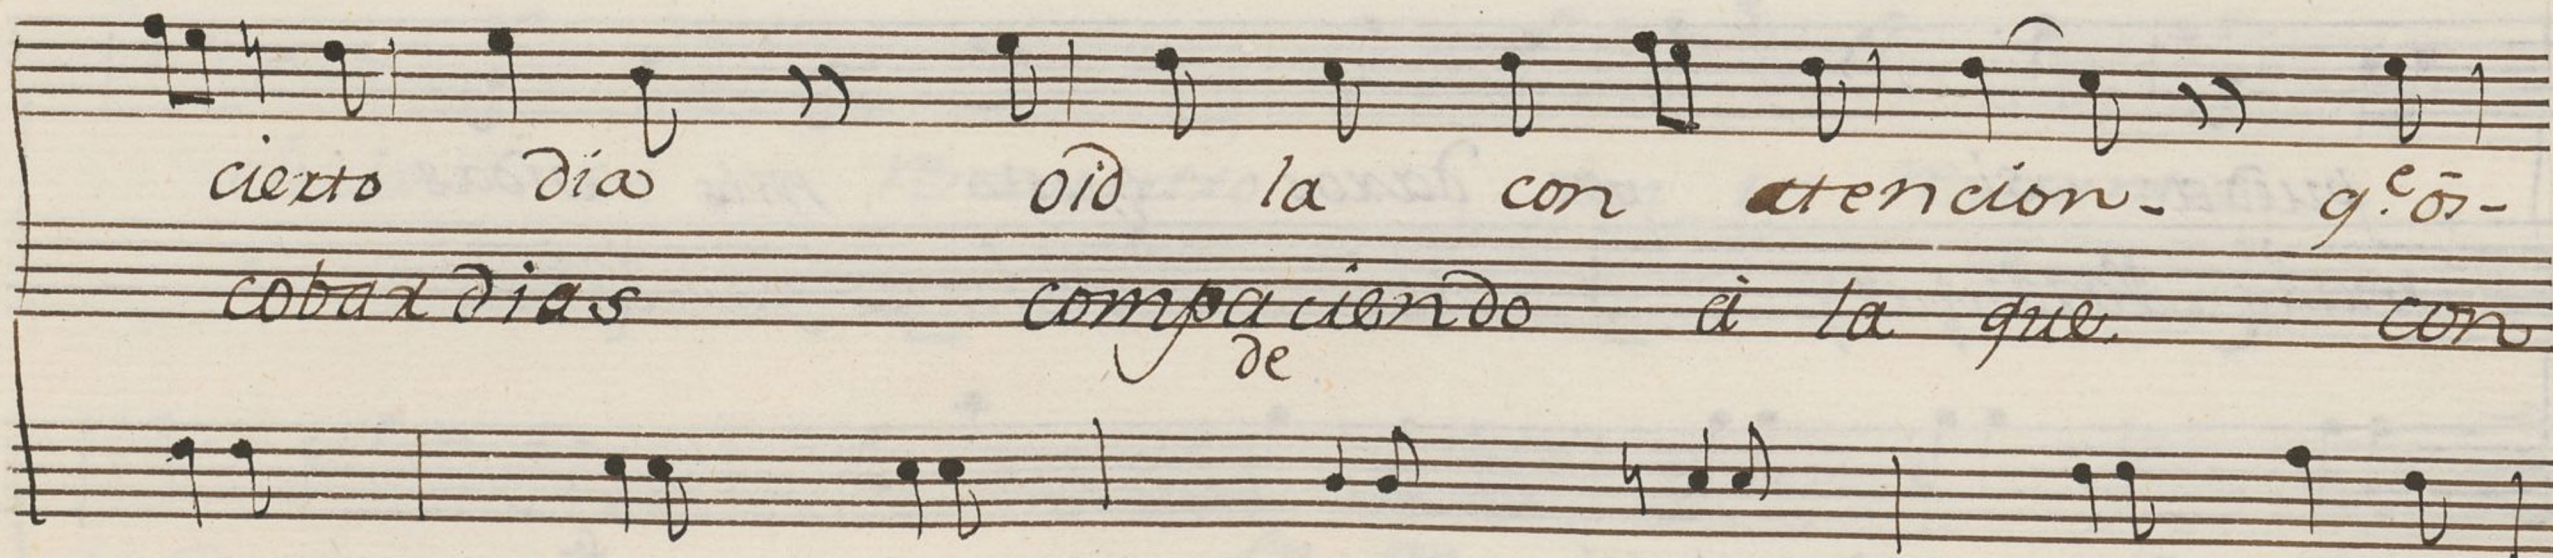 cierto dia oid la con atencion - q.e os -
cobardias compaciendo á la que con
de